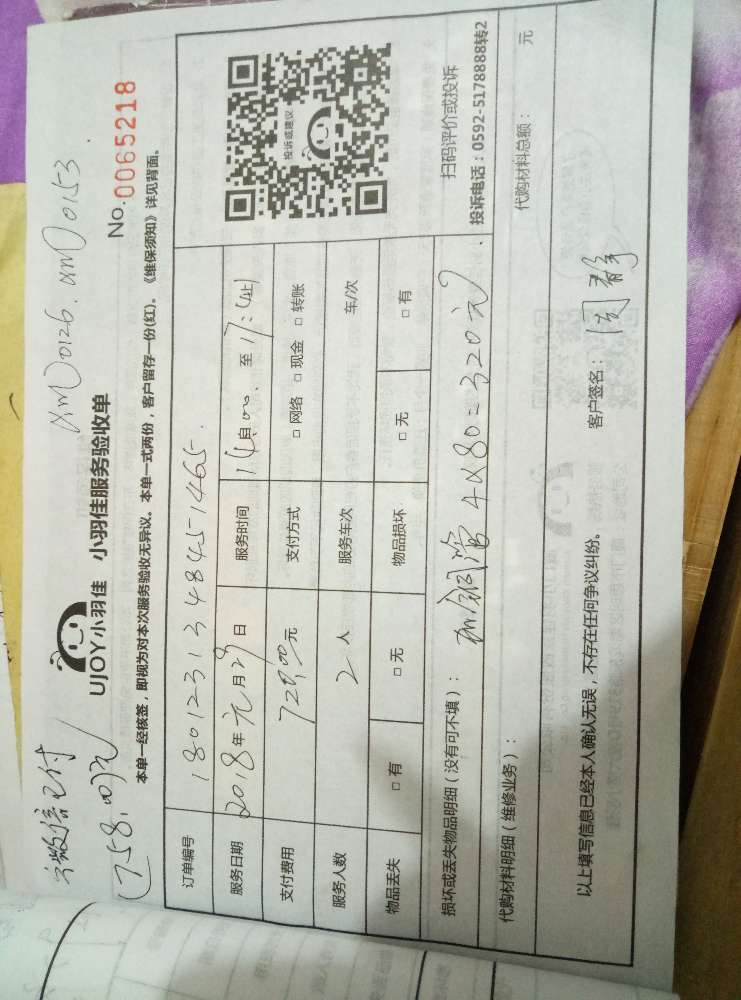 微信已付
(758.00元)
XM0126.XM0153.
UJOY小羽佳 小羽佳服务验收单
No.0065218
本单一经核签，即视为对本次服务验收无异议。本单一式两份，客户留存一份(红)。《维保须知》详见背面。
订单编号 180123134845 1465.
服务日期 2018年元月29日 服务时间 14自:00、至17:(止)
支付费用 元 支付方式 □网络 □现金 □转账
服务人数 2人 服务车次 车/次
物品丢失 □有 □无 物品损坏 □无 □有
投诉或建议
扫码评价或投诉
投诉电话：0592-5178888转2
损坏或丢失物品明细（没有可不填）： 加铜管4×80=320元.
代购材料明细（维修业务）： 代购材料总额： 元
以上填写信息已经本人确认无误，不存在任何争议纠纷。 客户签名：